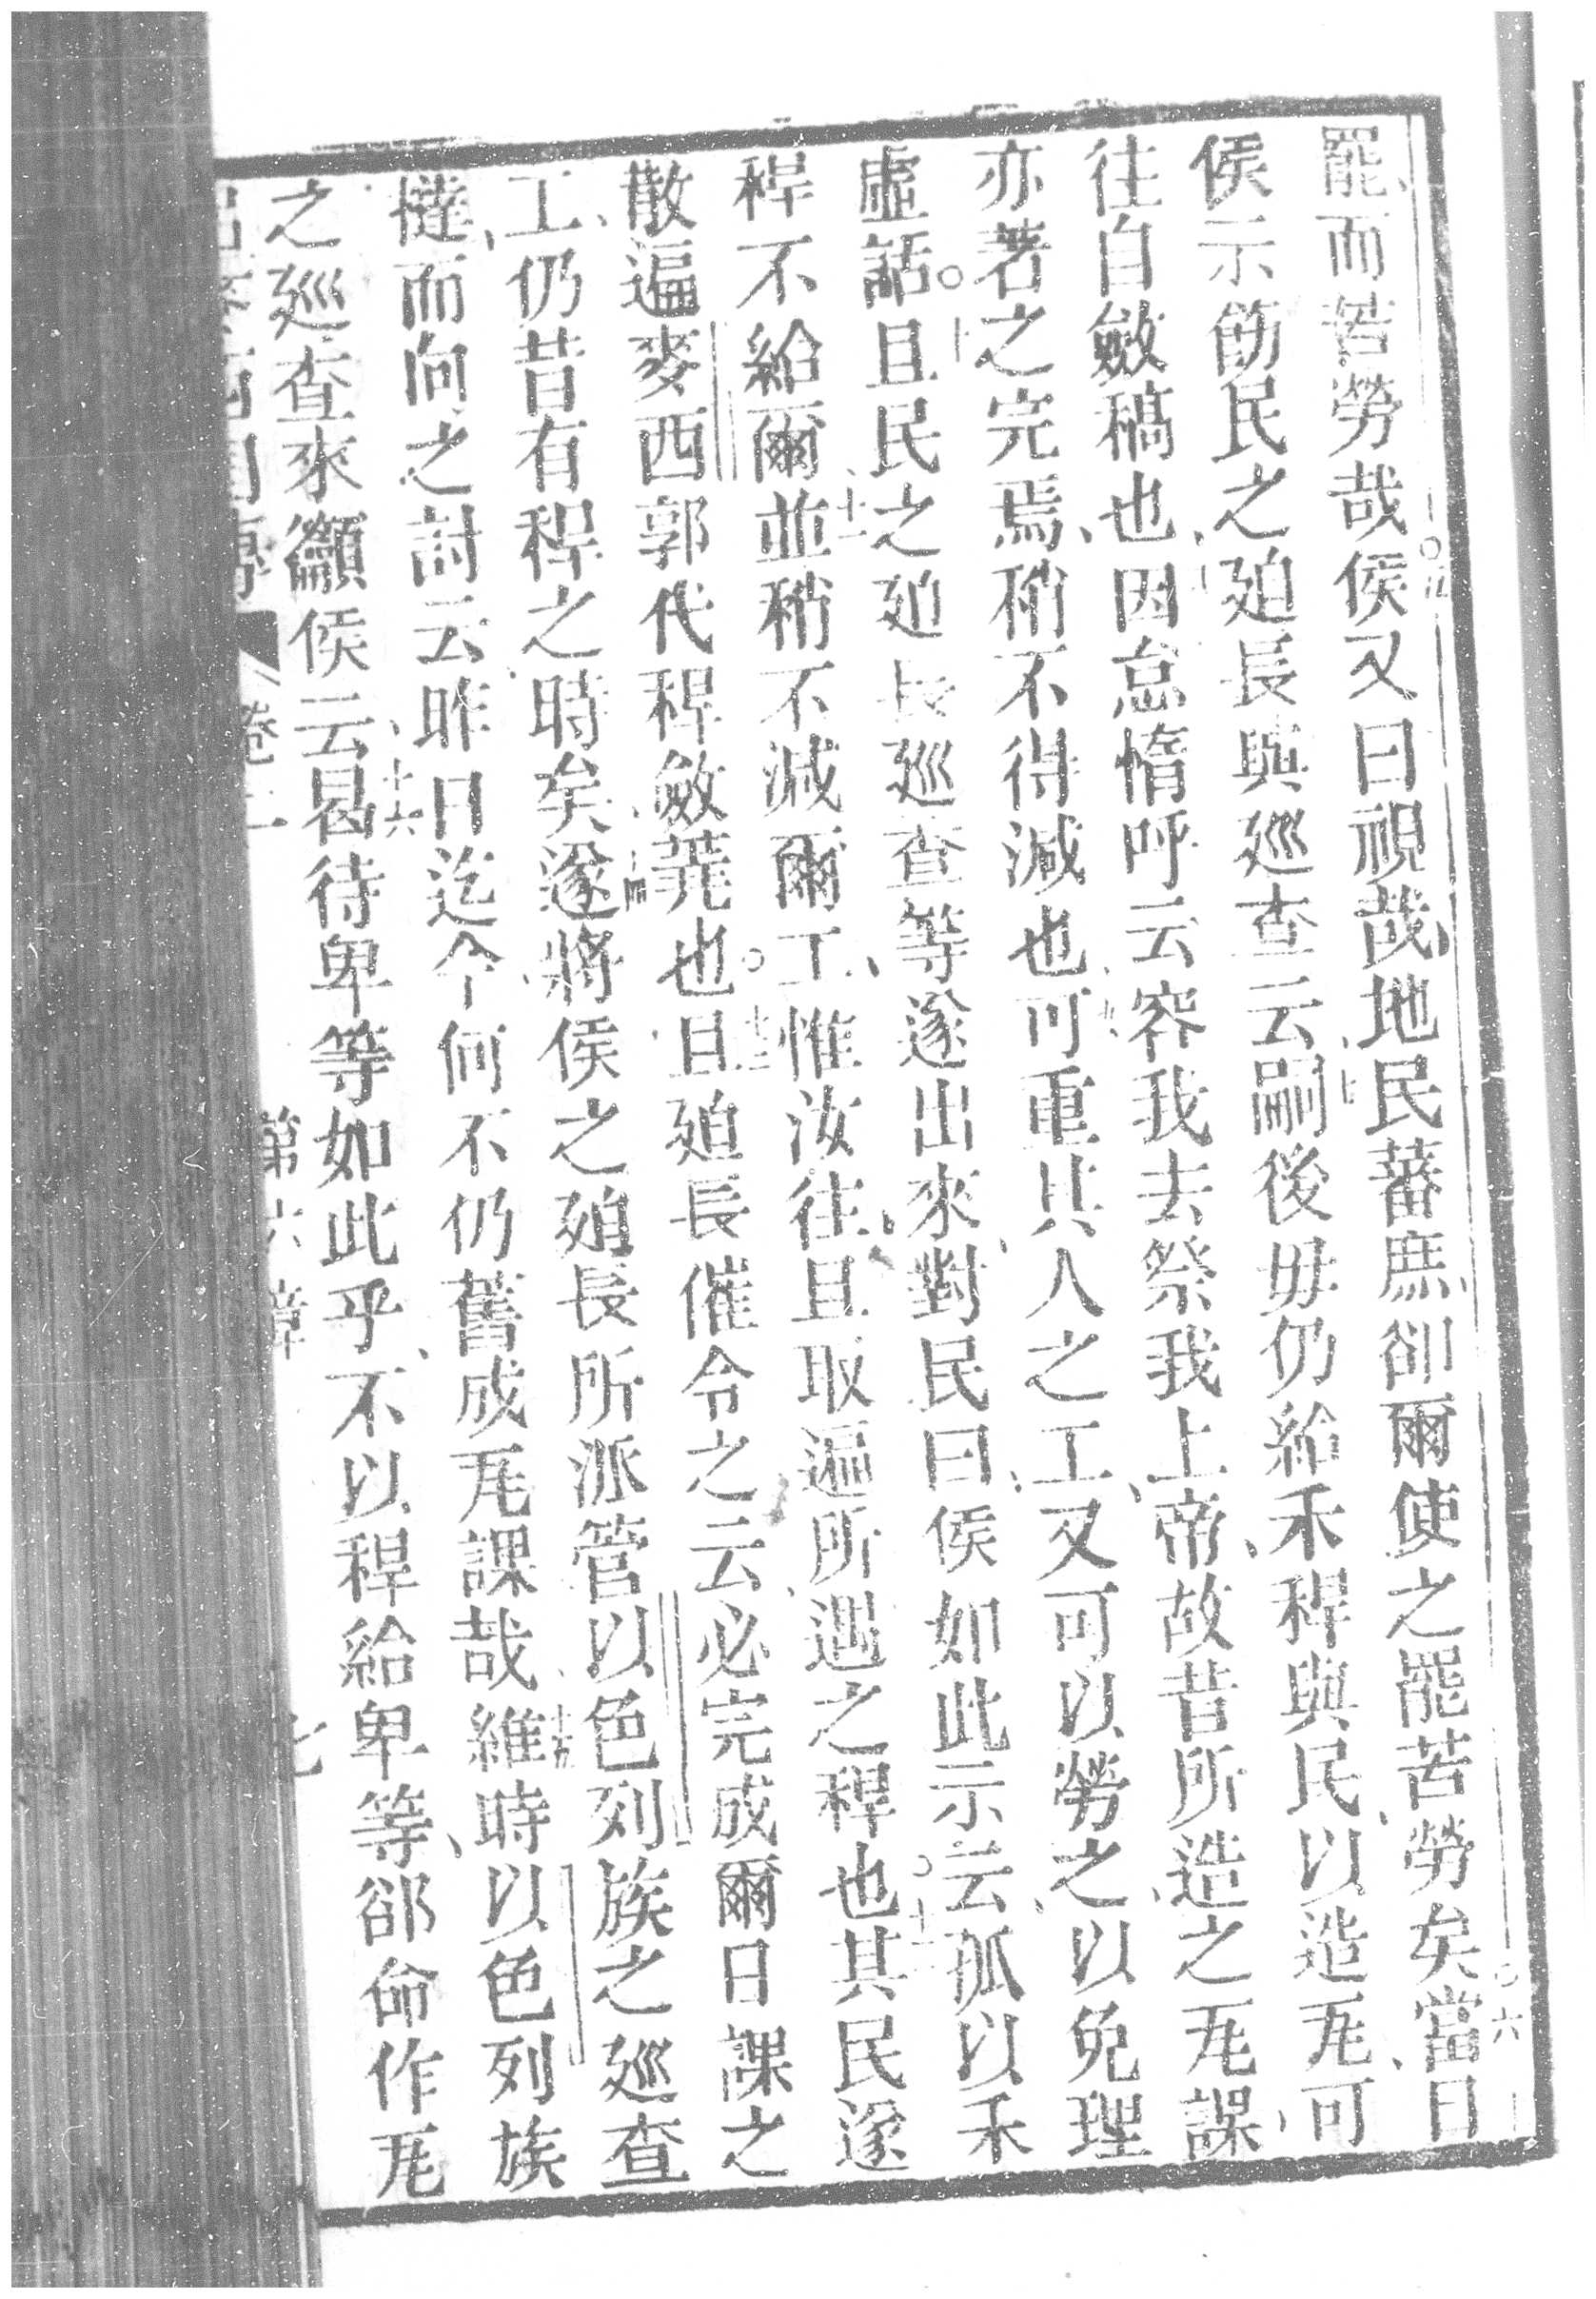 罷、而苦勞哉。○五侯又曰視哉、地民蕃庶、卻爾使之罷苦勞矣。○六當日
侯示飭民之廹長與廵查云、七嗣後毋仍給禾稈與民、以造㼚、可
往自斂稿也、因怠惰呼云、容我去祭我上帝、故昔所造之㼚課、
亦著之完焉、稍不得減也、九可重其人之工、又可以勞之、以免理
虛話。○十且民之廹長廵查等遂出來、對民曰、侯如此示云、孤以禾
稈不給爾、十一並稍不減爾工、惟汝往、且取遍所遇之稈也。○十二其民遂
散遍麥西郭、代稈斂蕘也。○十三且廹長催令之云、必完成爾日課之
工、仍昔有稈之時矣。十四遂將侯之廹長所派管以色列族之廵查
撻、而向之討云、昨日迄今、何不仍舊成㼚課哉。十五維時以色列族
之廵查來籲侯云、十六曷待卑等如此乎、不以稈給卑等、卻命作㼚
卷二 第六章 七